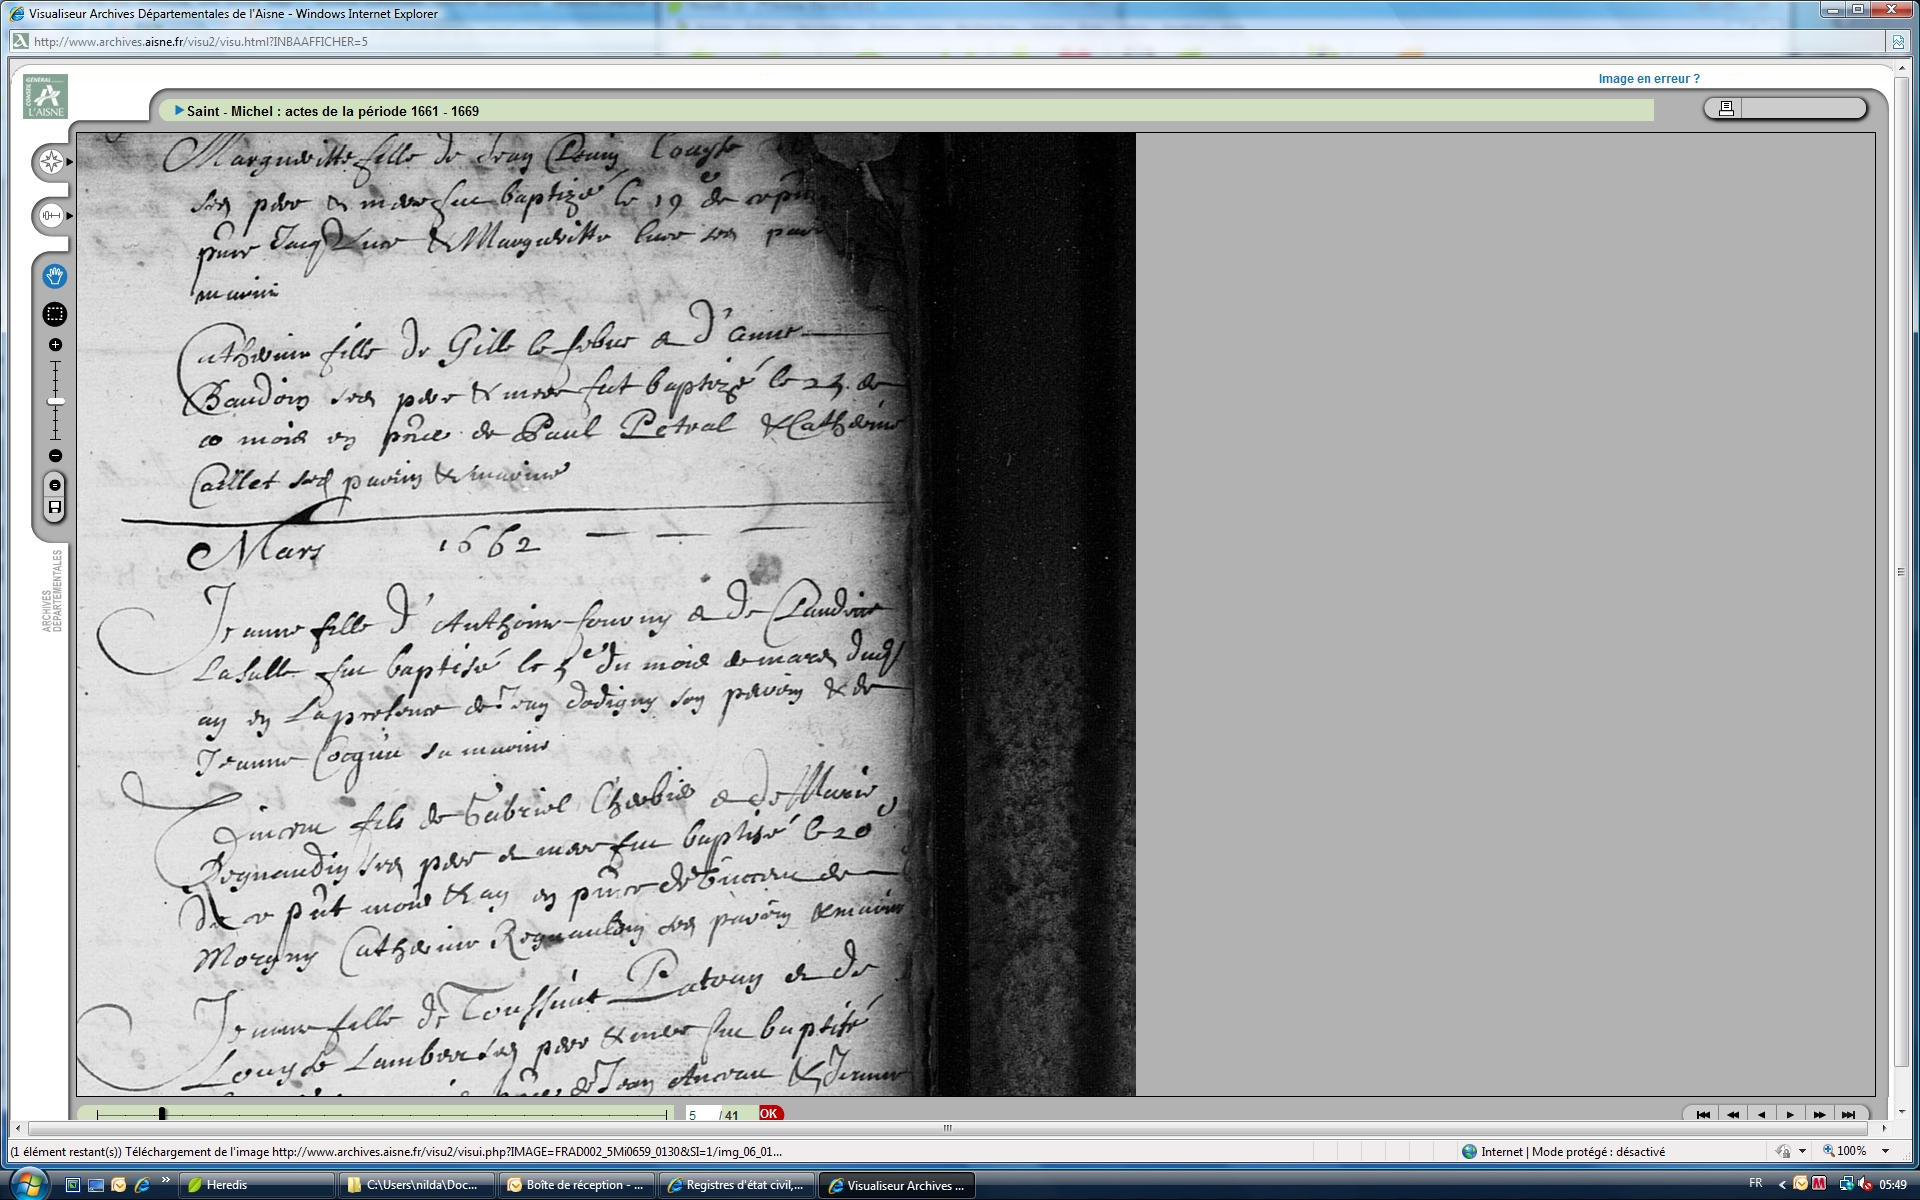 Visualiseur Archives Départementales de l'Aisne - Windows Internet Explorer
http://www.archives.aisne.fr/visu2/visu.html?INBAAFFICHER=5
Image en erreur ?
CONSEIL GÉNÉRAL
L'AISNE
Saint - Michel : actes de la période 1661 - 1669
ARCHIVES DÉPARTEMENTALES
Margueritte fille de Jean
ses pere & mere fut baptizé le 19e de
pnce Jacq Luce & Margueritte Luce ses
marine
Catherine fille de Gille le febue & d'anne
Baudoin ses pere & mere fut baptizé le 25 de
ce mois en pnce de Paul Petval & Catherine
Caillet ses parin & marine
Mars 1662
Jeanne fille d'Anthoine & de Claudine
Lasalle fut baptisé le 5e du mois de mars dud
an en La presence de Jean dodigny son parein & de
Jeanne Cocquin sa marine
Vincent fils de Gabriel & de Marie
Regnaudin ses pere & mere fut baptisé le 20e
de ce pnt mois & an en pnce de Vincent de
Morgny Catherine Regnauldin ses parein & marine
Jeanne fille de Toussint Patouy & de
Louyse Lambert ses pere & mere fut baptisé
de Jean & Jeanne
5 / 41 OK
(1 élément restant(s)) Téléchargement de l'image http://www.archives.aisne.fr/visu2/visui.php?IMAGE=FRAD002_5Mi0659_0130&SI=1/img_06_01...
Internet | Mode protégé : désactivé
100%
Heredis
C:\Users\nilda\Doc...
Boîte de réception - ...
Registres d'état civil,...
Visualiseur Archives ...
FR
05:49